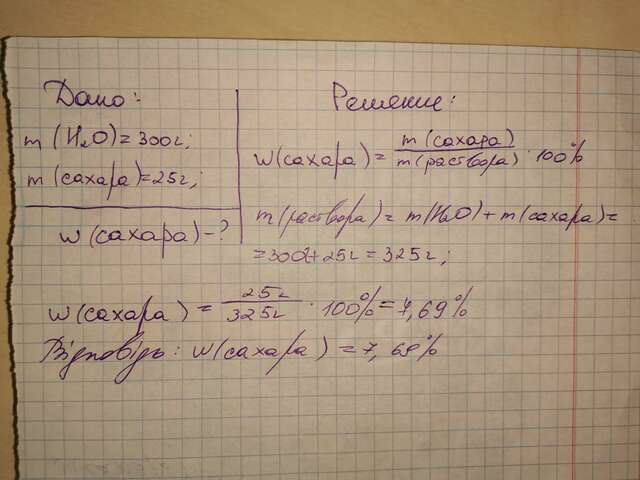 Дано:
m (H₂O) = 300г;
m (сахара) = 25г;
w (сахара) - ?
Решение:
w (сахара) = m (сахара) / m (раствора) · 100%
m (раствора) = m (H₂O) + m (сахара) =
= 300г + 25г = 325г;
w (сахара) = 25г / 325г · 100% = 7,69%
Відповідь: w (сахара) = 7,69%